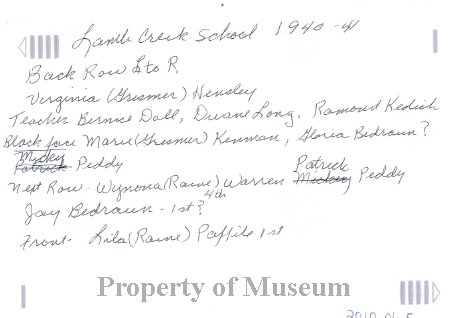 Lamb Creek School 1940-41
Back Row L to R,
Virginia (Gresmer) Hensley
Teacher Bernice Doll, Duane Long, Ramond Kedish
Black face Marie (Gresmer) Kenman, Gloria Bedraun?
Mickey Patrick
Patrick Peddy
Next Row - Wynona (Raine) Warren Mickey Peddy
4th
Jay Bedraun - 1st?
Front - Lila (Raine) Paffile 1st
Property of Museum